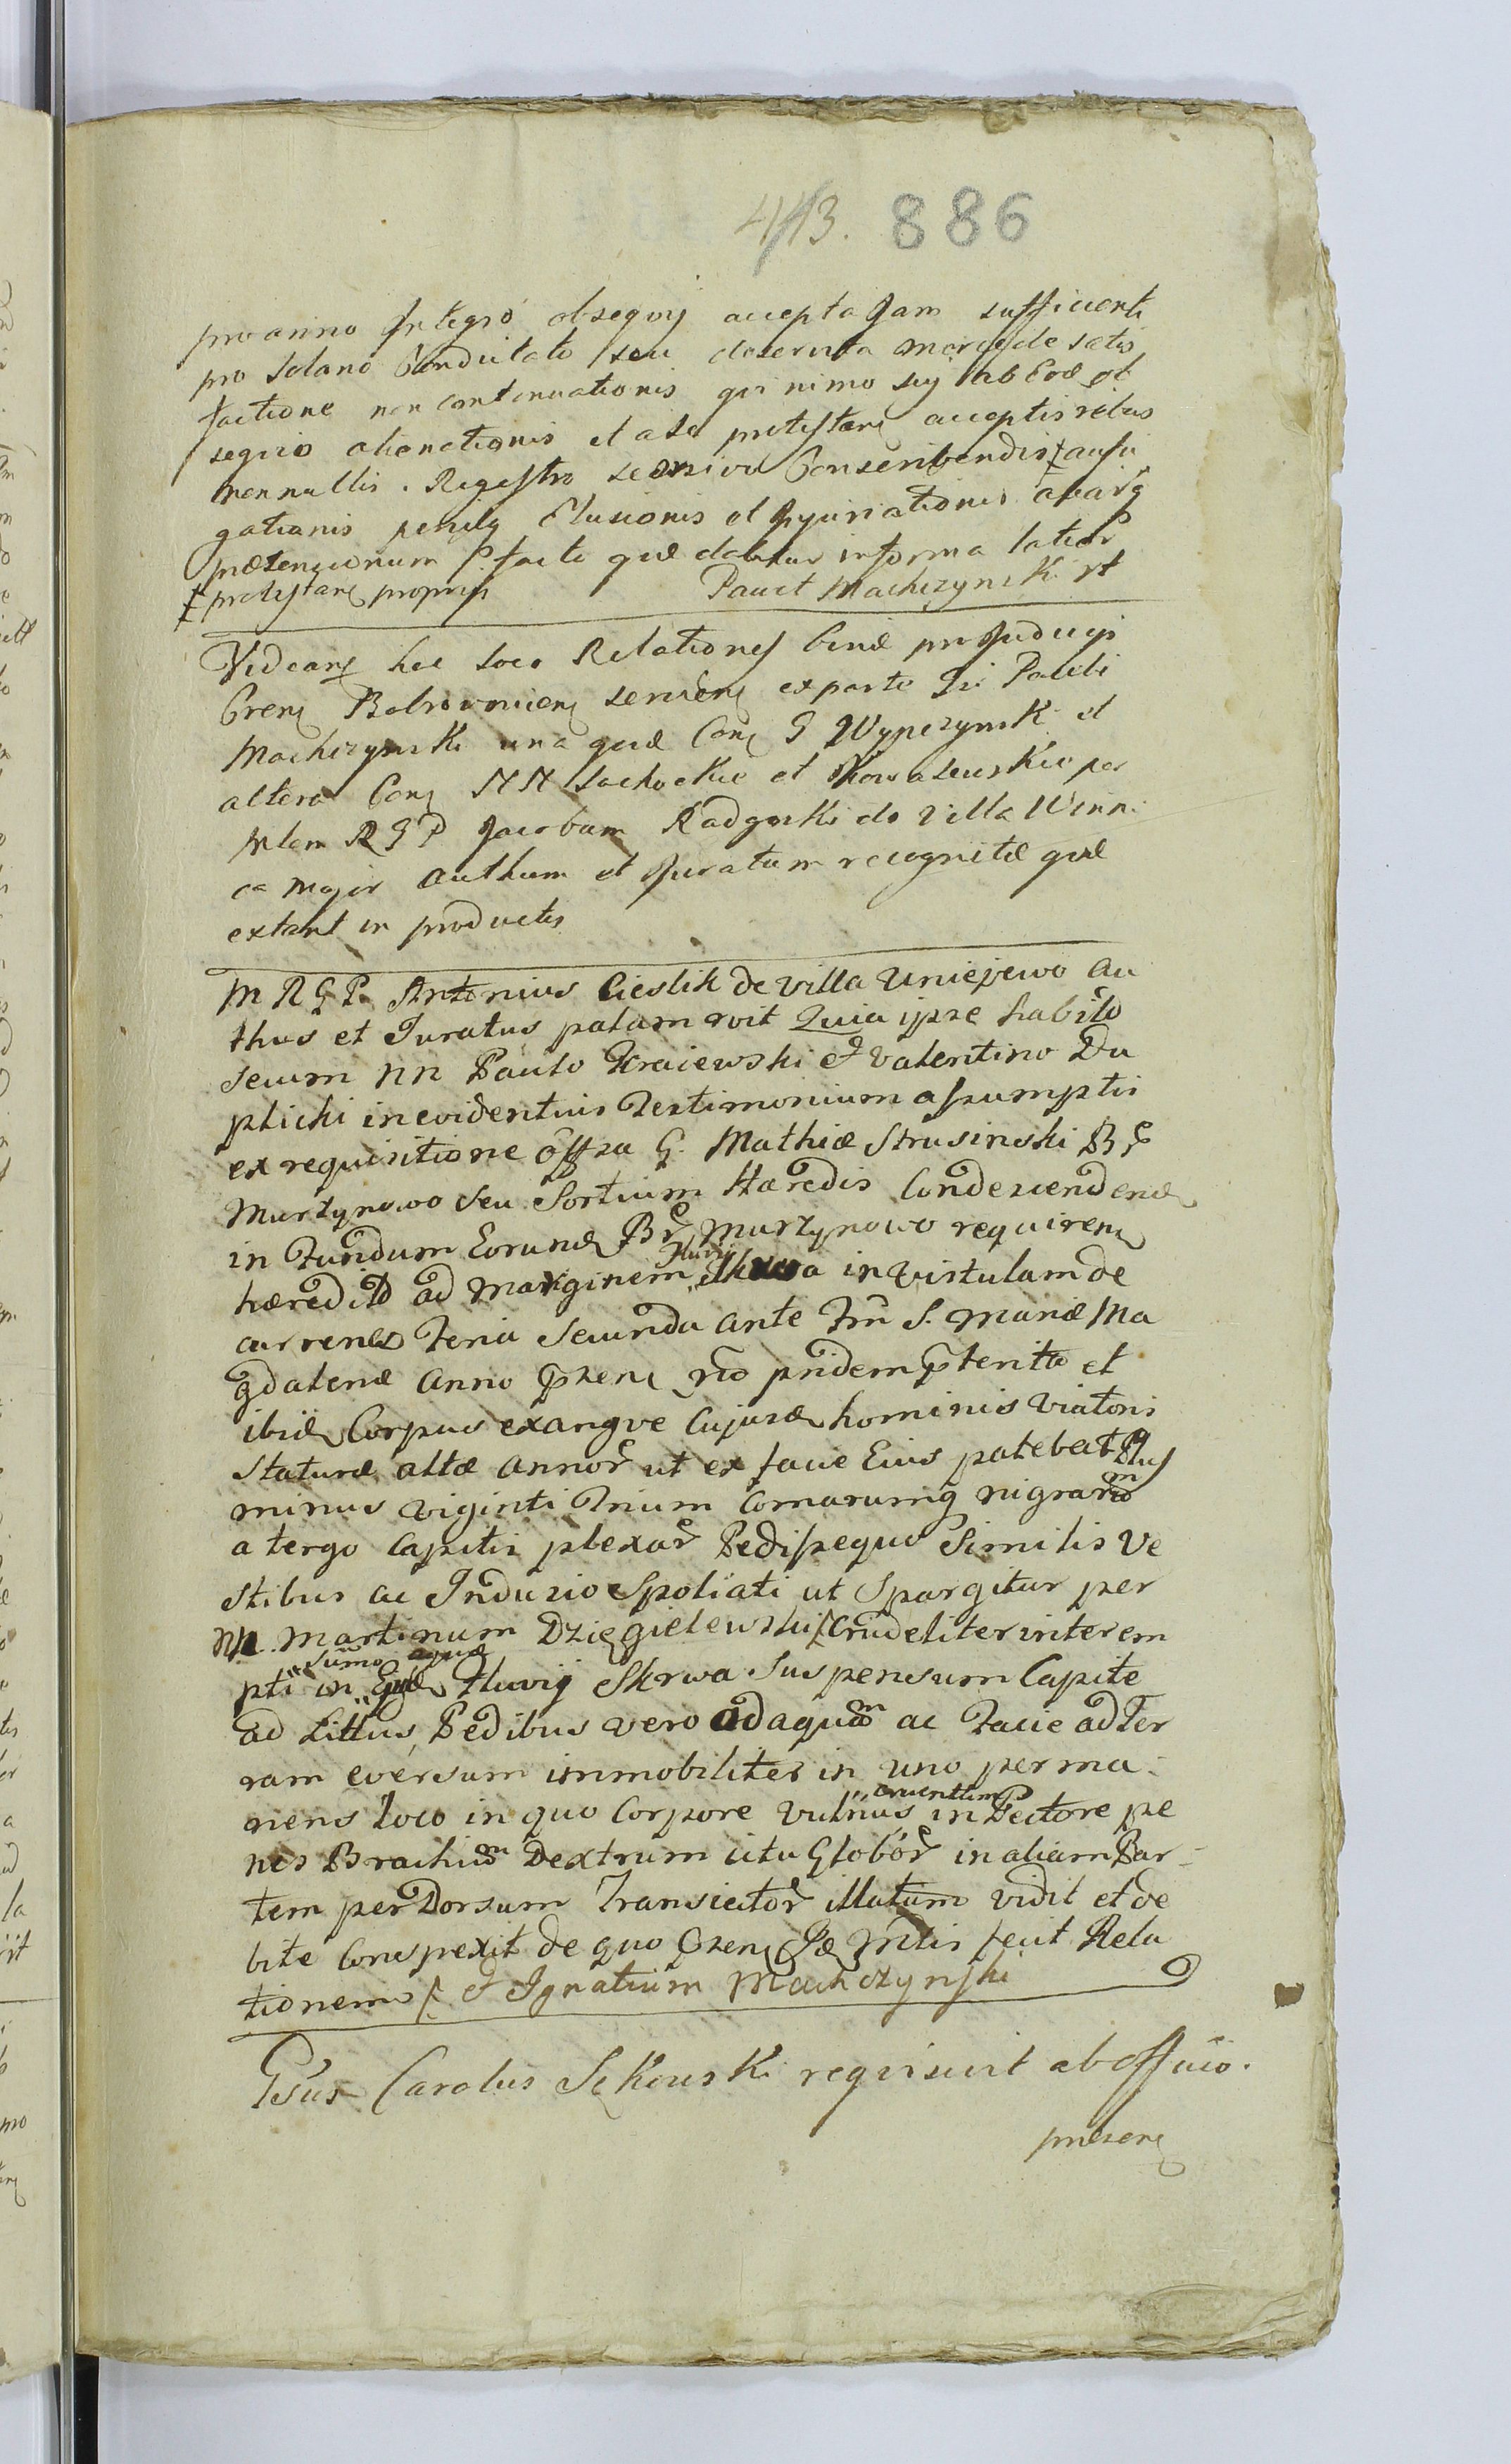 443. 886
pro anno Integro obsequij accepta Jam sufficienti
pro solano Conducitato seu deservita mercede satis
factione non continuationis qui nimo suj ab Eod ob
sequio alienationis et a se protestan acceptis rebus
nonnullis Regestro seorsivo Conscribendis aufu
gationis Elusionis et Injuriationis
prætensionum facti quæ dabitur in forma latior
protestan proprijs Pauel Machczynski
Videan hoc loco Relationes binæ pro Judicijs
Cren Bobrownicen servien ex parte Pauli
Machczynski una quæ Con G Wypczynski et
altera Con NN Sachockie et Kowalewskie per
Mlem RGP Jacobum Radgoski de Villa Winni
ca major authum et Juratum recognitæ quæ
extant in productis
M R G P. Antonius Cieslik de villa Uniejewo Au
thus et Juratus palam rvit Quia ipse habito
secum NN Paulo Kraiewski & Valentino Du
plicki in evidentius Testimonium assumptis
ex requisitione offsa G. Mathiæ Strusinski B
Murzynowo seu Sortium Hæredis Condescenden
in Fundum Eorund Br Murzynowo requiren
hæredit ad marginem Fluvij Skrwa in Vistulam de
curren Feria Secunda ante Fm S. Mariæ Ma
gdalenæ Anno pzen no pridem pterita et
ibid Corpus exangve Cujusd hominis Viatoris
Staturæ altæ annor ut ex facie Eius patebat Plus
minus viginti Trium Comarumq nigraru
a tergo Capitis plexar Pedissequo Similis Ve
stibus ac Indusio Spoliati ut Spargitur per
NN. Martinum Dziegielewski Crudeliter interem
pti in sumo aquæ Fluvij Skrwa Suspensum Capite
ad Littus, Pedibus vero ad aquam ac Facie ad Ter
ram eversum immobiliter in uno perma-
nens loco in quo Corpore vulnus cruentum in Pectore pe
nes Brachium Dextrum ictu Globor in aliam Par-
tem per Dorsum Transiector illatum vidit et de
bite Conspexit de quo pzen Mlis fecit Rela
tionem & Ignatium Machczynski
Gsus Carolus Sekowski requisivit ab officio.
præsen